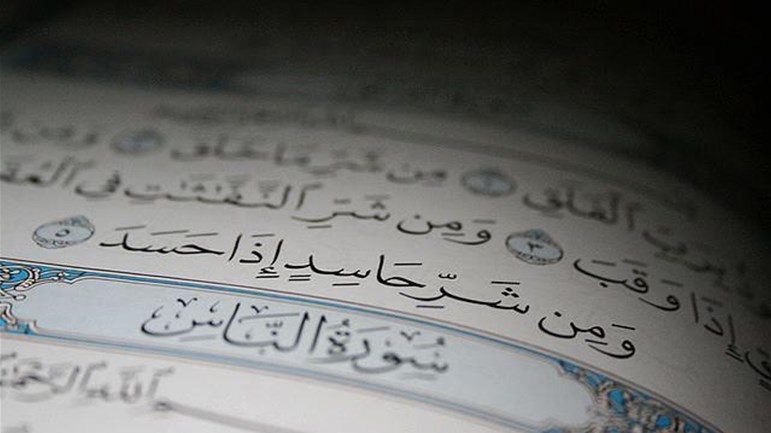 بِرَبِّ الْفَلَقِ ١ مِن شَرِّ مَا خَلَقَ ٢ وَمِن
إِذَا وَقَبَ ٣ وَمِن شَرِّ النَّفَّاثَاتِ فِي الْعُقَدِ
وَمِن شَرِّ حَاسِدٍ إِذَا حَسَدَ ٥
سُورَةُ النَّاسِ
اللَّهِ الرَّحْمَٰنِ